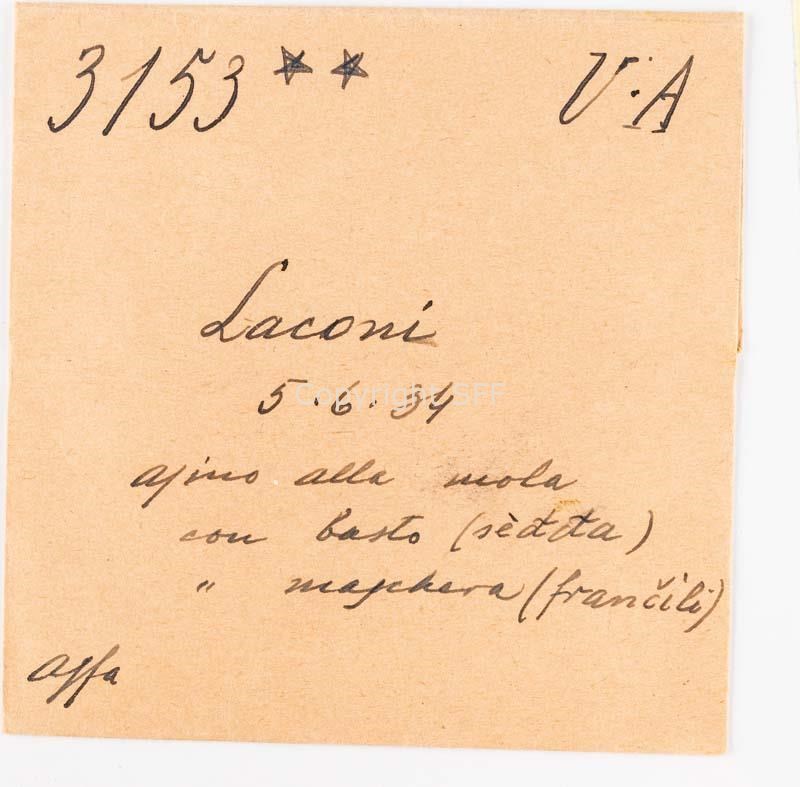 3153** V.A
Laconi
5.6.34
Copyright SFF
asino alla mola
con basto (sèđđa)
" maschera (frančili)
Agfa